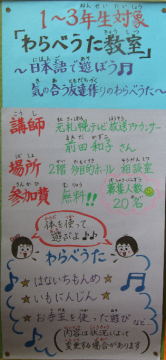 1〜3年生対象
「わらべうた教室」
〜日本語で遊ぼう♬
気の合う友達作りのわらべうた〜
講師 元札幌テレビ放送アナウンサー
前田和子さん
場所 2階 多目的ホール 相談室
参加費 無料!! 募集人数 20名
体を使って
遊ぶよ♪♪
わらべうた
☆はないちもんめ
☆いもにんじん
☆お手玉を使った遊び など
内容は状況によって
変更する場合があります